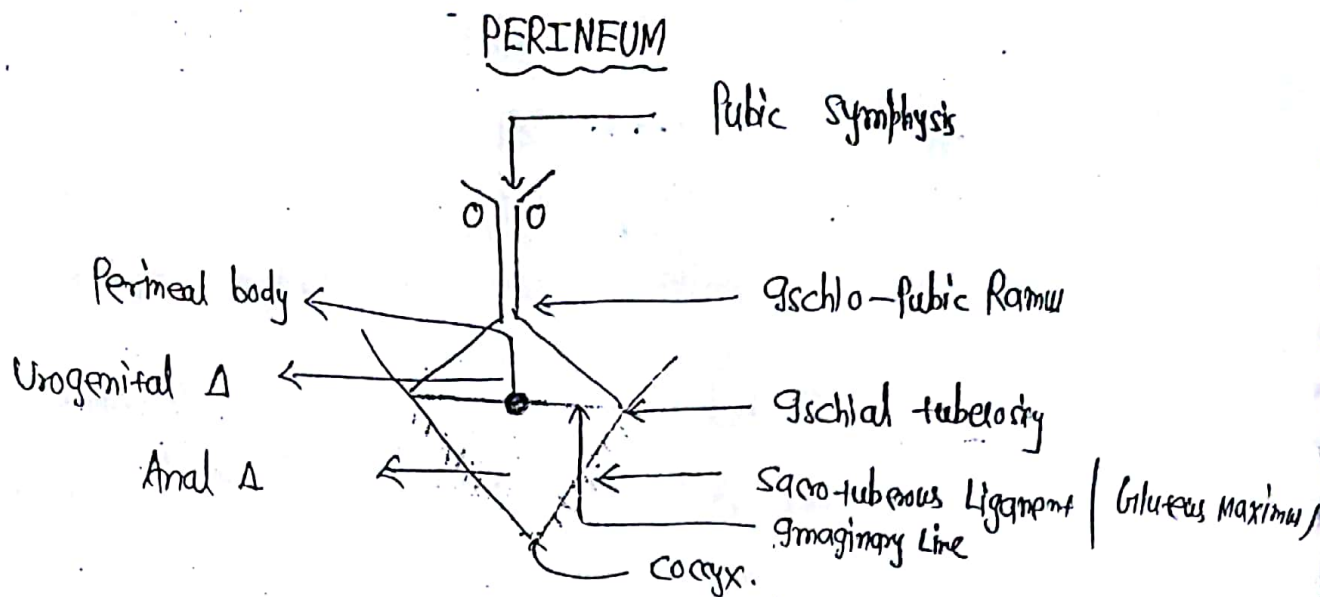 PERINEUM
Pubic symphysis
Perineal body
Ischio-Pubic Ramus
Urogenital Δ
Ischial tuberosity
Anal Δ
Sacro-tuberous Ligament / Gluteus Maximus
Imaginary Line
coccyx.